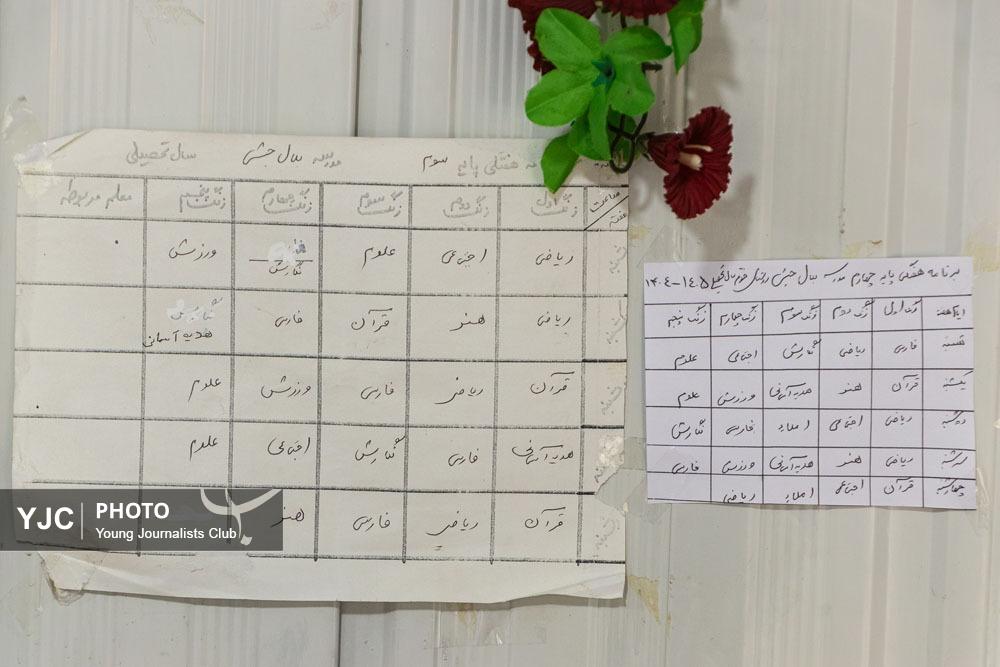 هفتگی پایه سوم مدرسه سال جبشی سال تحصیلی
ساعت هفته زنگ اول زنگ دوم زنگ سوم زنگ چهارم زنگ پنجم معلم مربوطه
ریاضی اجتماعی علوم نگارش ورزش
ریاضی هنر قرآن فارسی نگارش
هدیه آسمان
قرآن ریاضی فارسی ورزش علوم
هدیه آسمانی فارسی نگارش اجتماعی علوم
قرآن ریاضی فارسی هنر
برنامه هفتگی پایه چهارم مدرسه سال تحصیلی ۱۴۰۵-۱۴۰۴
ایام هفته زنگ اول زنگ دوم زنگ سوم زنگ چهارم زنگ پنجم
شنبه فارسی ریاضی نگارش اجتماعی علوم
یکشنبه قرآن هنر هدیه آسمانی ورزش علوم
دوشنبه ریاضی اجتماعی املاء فارسی نگارش
سه‌شنبه ریاضی هنر هدیه آسمانی ورزش فارسی
چهارشنبه قرآن اجتماعی املاء ریاضی
YJC PHOTO
Young Journalists Club